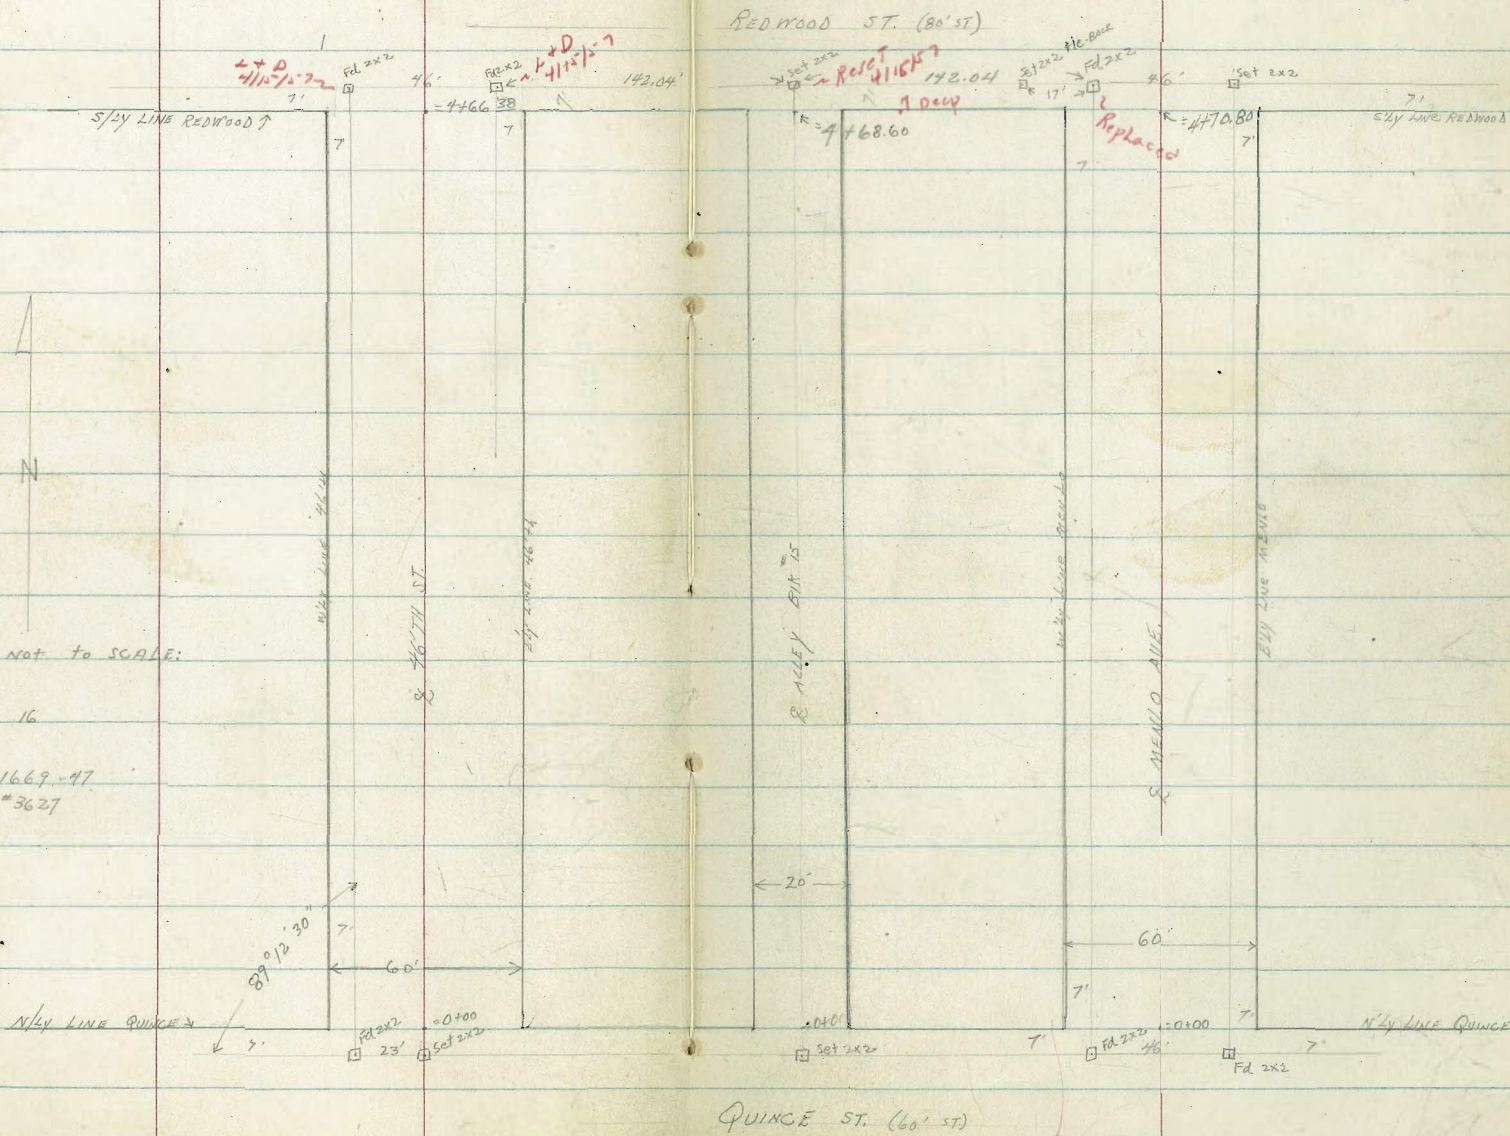 REDWOOD ST. (80' ST)
L + D
4/15/57
Fd 2x2
46'
Fd 2x2
L + D
4/15/57
142.04'
Set 2x2
Reset
4/15/57
142.04
Set 2x2 tie-BACK
17'
Fd 2x2
46'
Set 2x2
7'
S/LY LINE REDWOOD
7'
=4+66.38
7
=4+68.60
7 Deep
Replaced
7
=4+70.80
7'
7'
S'LY LINE REDWOOD
N
W'LY LINE 46TH
℄ 46TH ST.
E'LY LINE 46TH
℄ ALLEY BLK 15
W'LY LINE MENLO
℄ MENLO AVE.
E'LY LINE MENLO
Not to SCALE:
16
1669-47
#3627
20'
89°12'30"
7'
60'
60'
7'
N/LY LINE QUINCE
7'
Fd 2x2
23'
=0+00
Set 2x2
0+00
Set 2x2
7'
Fd 2x2
46'
=0+00
7'
Fd 2x2
7'
N'LY LINE QUINCE
QUINCE ST. (60' ST.)